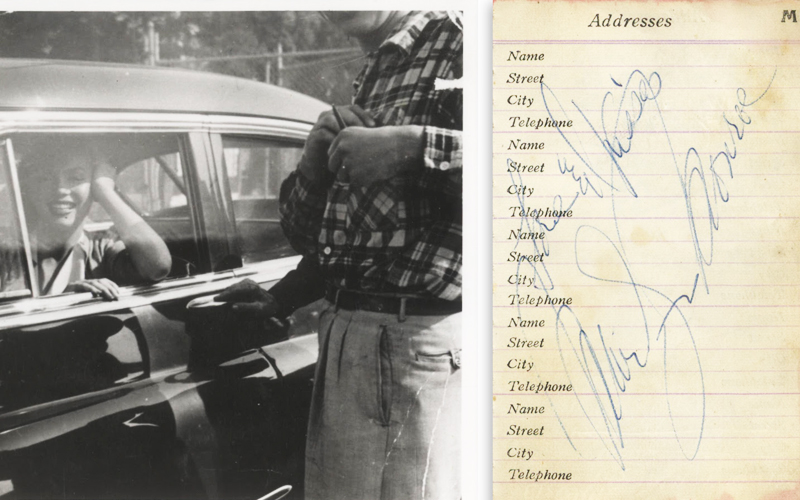 Addresses
M
Name
Street
City
Telephone
Name
Street
City
Telephone
Name
Street
City
Telephone
Name
Street
City
Telephone
Name
Street
City
Telephone
Love & Kisses
Marilyn Monroe